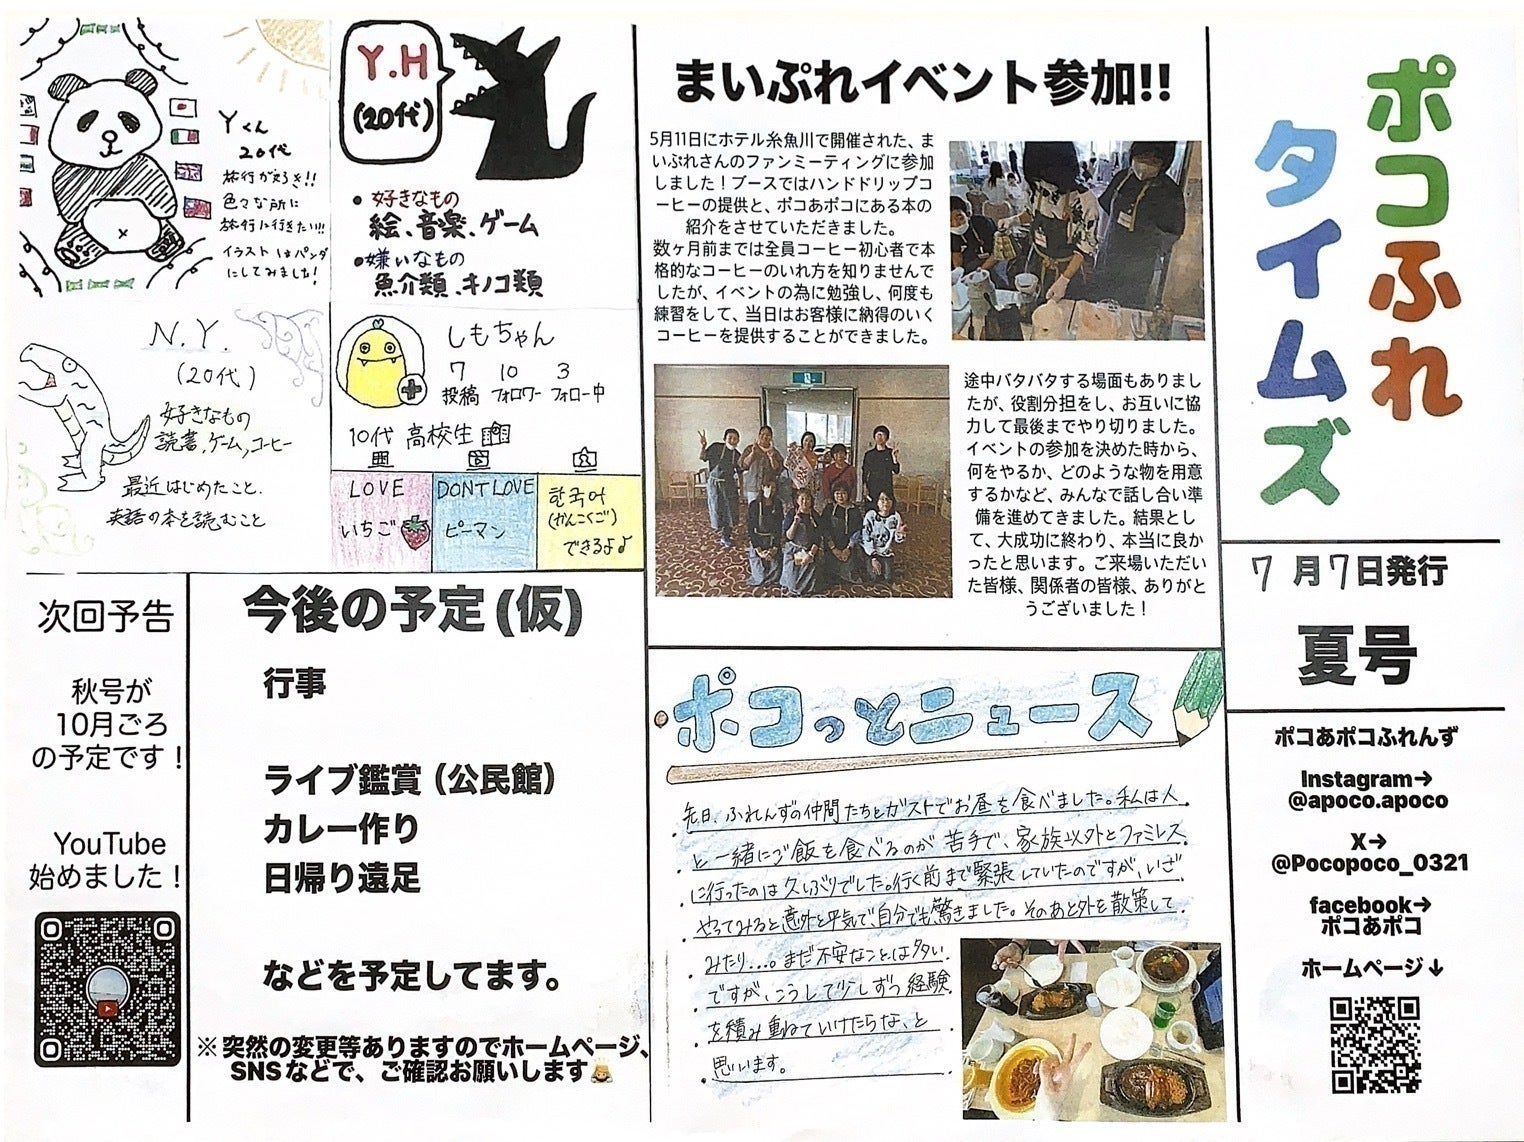 ポコふれ
タイムズ
7月7日発行
夏号
ポコあポコふれんず
Instagram→
@apoco.apoco
X→
@Pocopoco_0321
facebook→
ポコあポコ
ホームページ↓
まいぷれイベント参加!!
5月11日にホテル糸魚川で開催された、ま
いぷれさんのファンミーティングに参加
しました！ブースではハンドドリップコ
ーヒーの提供と、ポコあポコにある本の
紹介をさせていただきました。
数ヶ月前までは全員コーヒー初心者で本
格的なコーヒーのいれ方を知りませんで
したが、イベントの為に勉強し、何度も
練習をして、当日はお客様に納得のいく
コーヒーを提供することができました。
途中バタバタする場面もありまし
たが、役割分担をし、お互いに協
力して最後までやり切りました。
イベントの参加を決めた時から、
何をやるか、どのような物を用意
するかなど、みんなで話し合い準
備を進めてきました。結果とし
て、大成功に終わり、本当に良か
ったと思います。ご来場いただい
た皆様、関係者の皆様、ありがと
うございました！
ポコっとニュース
先日、ふれんずの仲間たちとガストでお昼を食べました。私は人
と一緒にご飯を食べるのが苦手で、家族以外とファミレス
に行ったのは久しぶりでした。行く前まで緊張していたのですが、いざ
やってみると意外と平気で自分でも驚きました。そのあと外を散策して
みたり...。まだ不安なことは多い
ですが、こうして少しずつ経験
を積み重ねていけたらな、と
思います。
Yくん
20代
旅行が好き!!
色々な所に
旅行に行きたい!!!
イラストはパンダ
にしてみました!
Y.H
(20代)
・好きなもの
絵、音楽、ゲーム
・嫌いなもの
魚介類、キノコ類
N.Y.
(20代)
好きなもの
読書、ゲーム、コーヒー
最近はじめたこと、
英語の本を読むこと
しもちゃん
7 10 3
投稿 フォロワー フォロー中
10代 高校生
LOVE
いちご
DONT LOVE
ピーマン
한국어
(かんこくご)
できるよ♪
今後の予定(仮)
行事
ライブ鑑賞（公民館）
カレー作り
日帰り遠足
などを予定してます。
※突然の変更等ありますのでホームページ、
SNSなどで、ご確認お願いします
次回予告
秋号が
10月ごろ
の予定です！
YouTube
始めました！